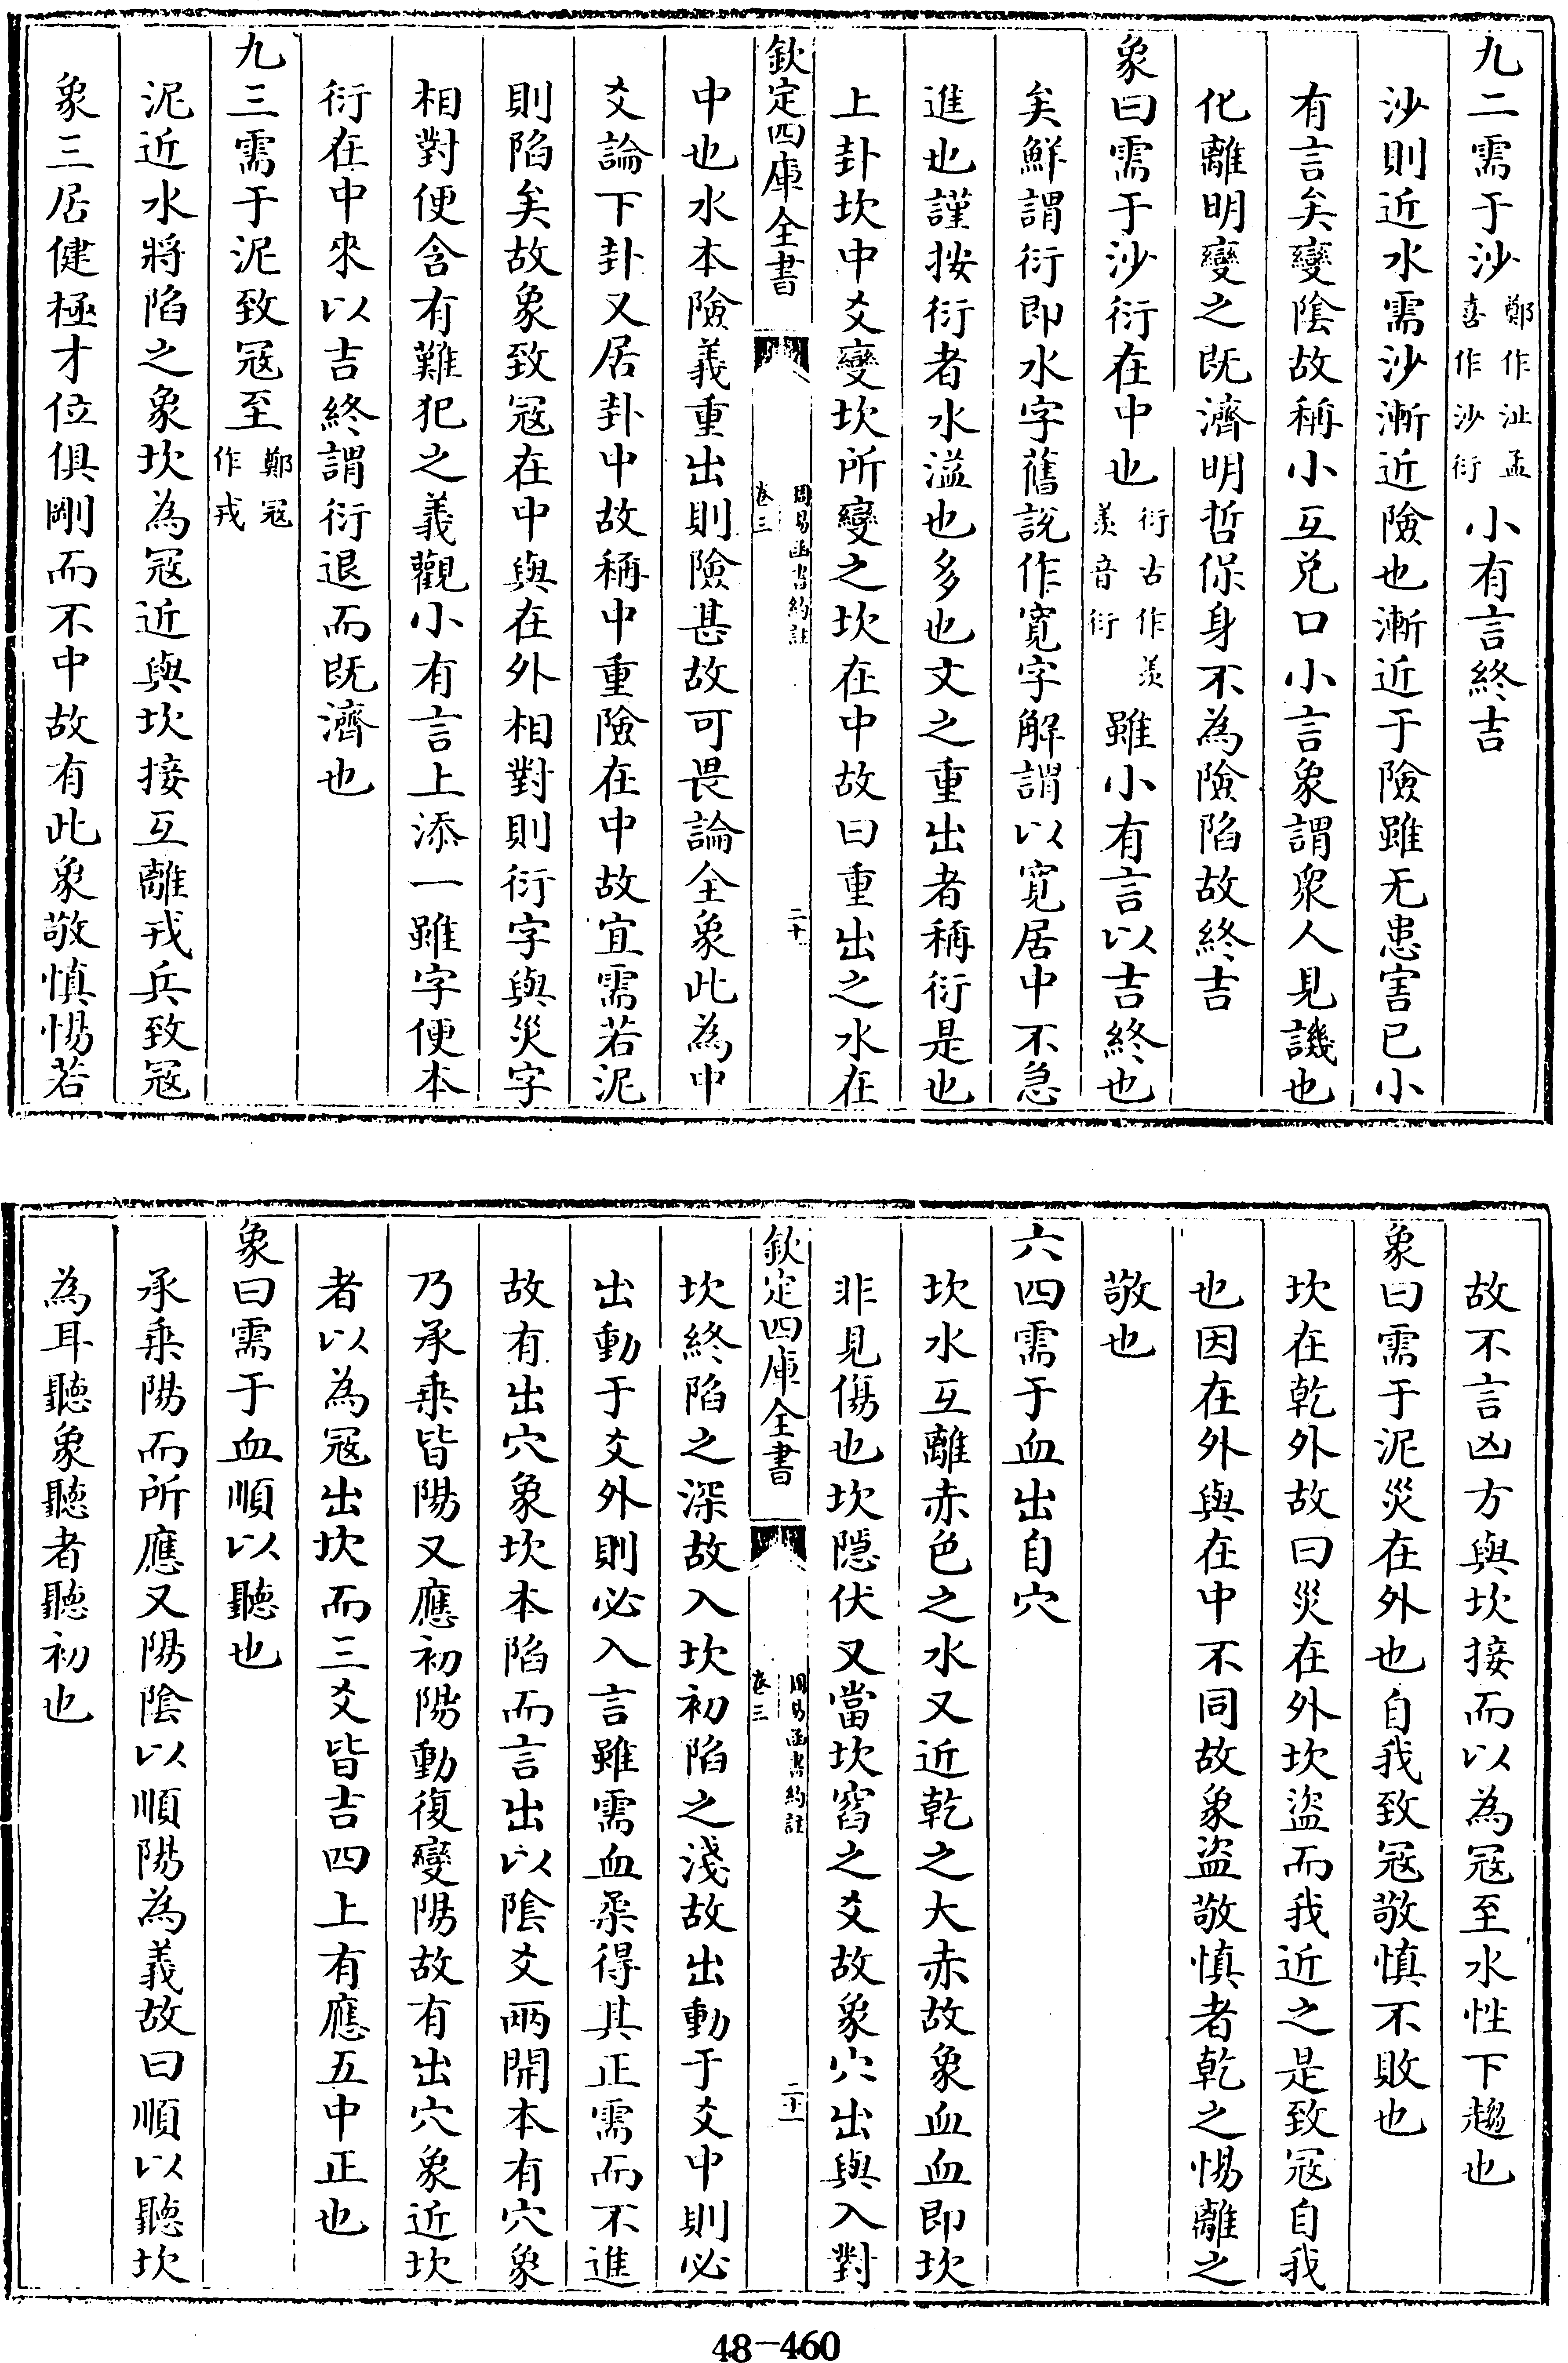 九二需于沙鄭作沚孟喜作沙衍小有言終吉
沙則近水需沙漸近險也漸近于險雖无患害已小
有言矣變陰故稱小互兌口小言象謂衆人見譏也
化離明變之既濟明哲保身不為險陷故終吉
象曰需于沙衍在中也衍古作羨羨音衍雖小有言以吉終也
矣鮮謂衍即水字舊說作寛字解謂以寛居中不急
進也謹按衍者水溢也多也文之重出者稱衍是也
上卦坎中爻變坎所變之坎在中故曰重出之水在
欽定四庫全書
周易函書約註
卷三
二十
中也水本險義重出則險甚故可畏論全象此為中
爻論下卦又居卦中故稱中重險在中故宜需若泥
則陷矣故象致寇在中與在外相對則衍字與災字
相對便含有難犯之義觀小有言上添一雖字便本
衍在中來以吉終謂衍退而既濟也
九三需于泥致寇至鄭寇作戎
泥近水將陷之象坎為寇近與坎接互離戎兵致寇
象三居健極才位俱剛而不中故有此象敬慎惕若
故不言凶方與坎接而以為寇至水性下趨也
象曰需于泥災在外也自我致寇敬慎不敗也
坎在乾外故曰災在外坎盜而我近之是致寇自我
也因在外與在中不同故象盜敬慎者乾之惕離之
敬也
六四需于血出自穴
坎水互離赤色之水又近乾之大赤故象血血即坎
非見傷也坎隱伏又當坎窞之爻故象穴出與入對
欽定四庫全書
周易函書約註
卷三
二十一
坎終陷之深故入坎初陷之淺故出動于爻中則必
出動于爻外則必入言雖需血柔得其正需而不進
故有出穴象坎本陷而言出以陰爻兩開本有穴象
乃承乘皆陽又應初陽動復變陽故有出穴象近坎
者以為寇出坎而三爻皆吉四上有應五中正也
象曰需于血順以聽也
承乘陽而所應又陽陰以順陽為義故曰順以聽坎
為耳聽象聽者聽初也
48-460